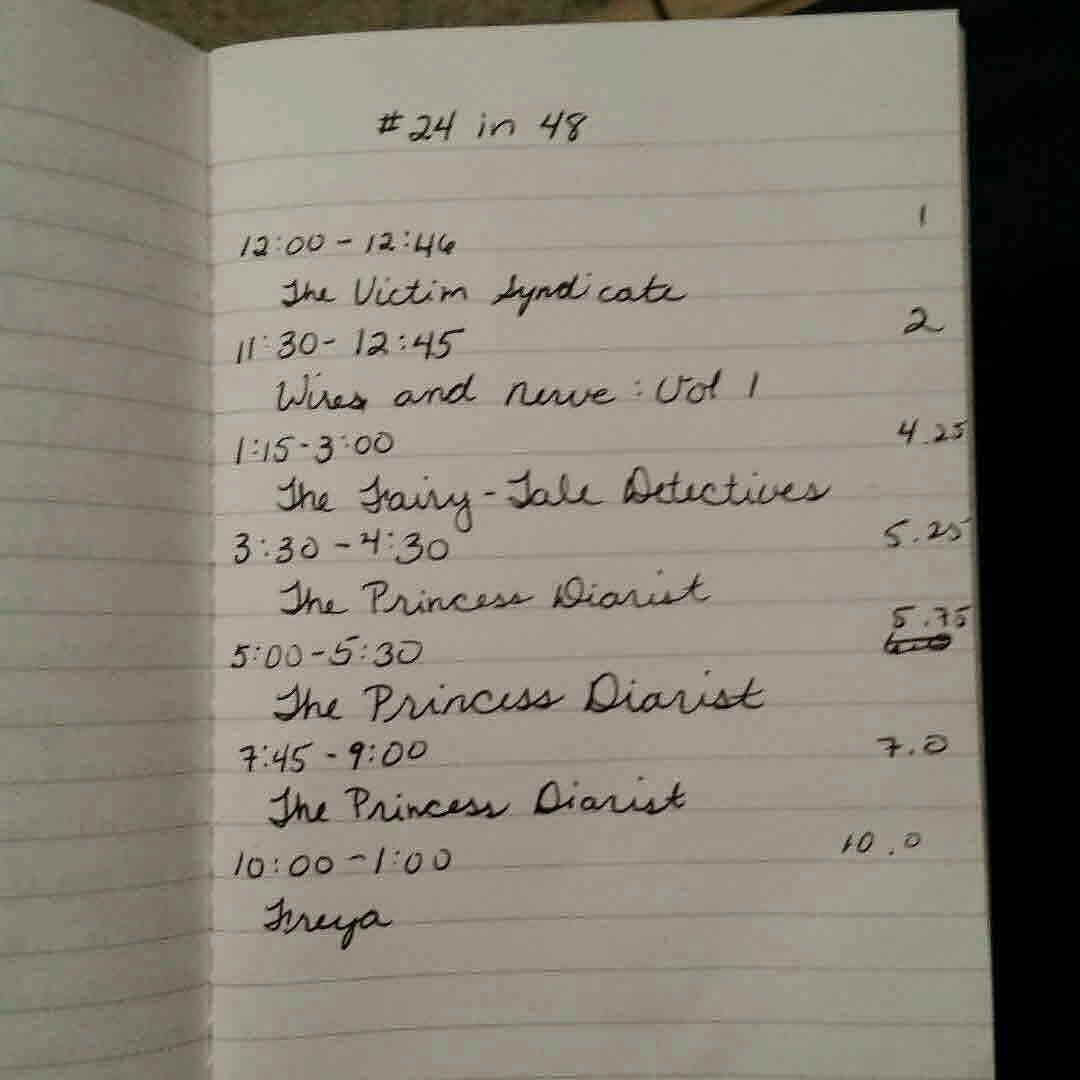 #24 in 48
12:00 - 12:46 1
The Victim Syndicate
11:30 - 12:45 2
Wires and nerve : Vol 1
1:15 - 3:00 4.25
The Fairy-Tale Detectives
3:30 - 4:30 5.25
The Princess Diarist
5:00 - 5:30 5.75
The Princess Diarist
7:45 - 9:00 7.0
The Princess Diarist
10:00 - 1:00 10.0
Freya